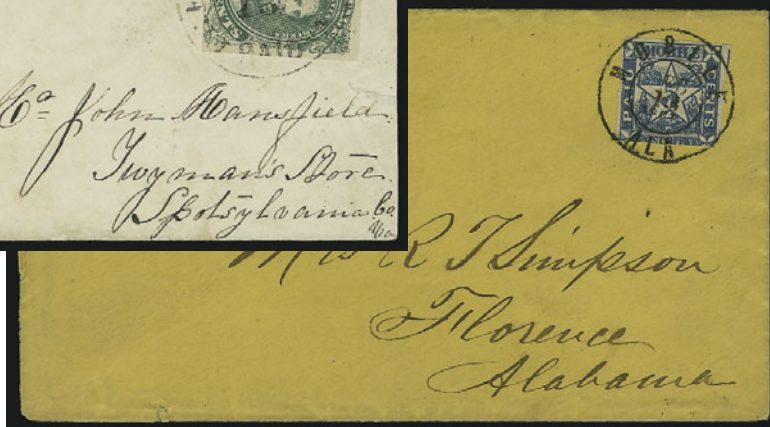 John Mansfield
Twyman's Store
Spotsylvania Co.
Va
MOBILE
ALA
PAID
CENTS
Mrs R T Simpson
Florence
Alabama